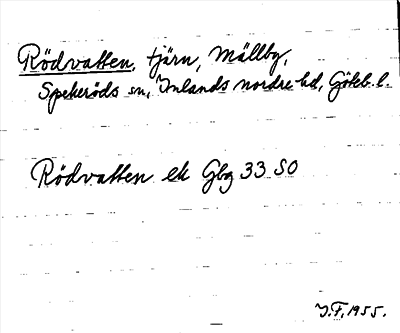 Rödvatten, tjärn, Mällby,
Spekeröds sn, Inlands nordre hd, Göteb. l.
Rödvatten ek Gbg 33 SO
J.F. 1955.